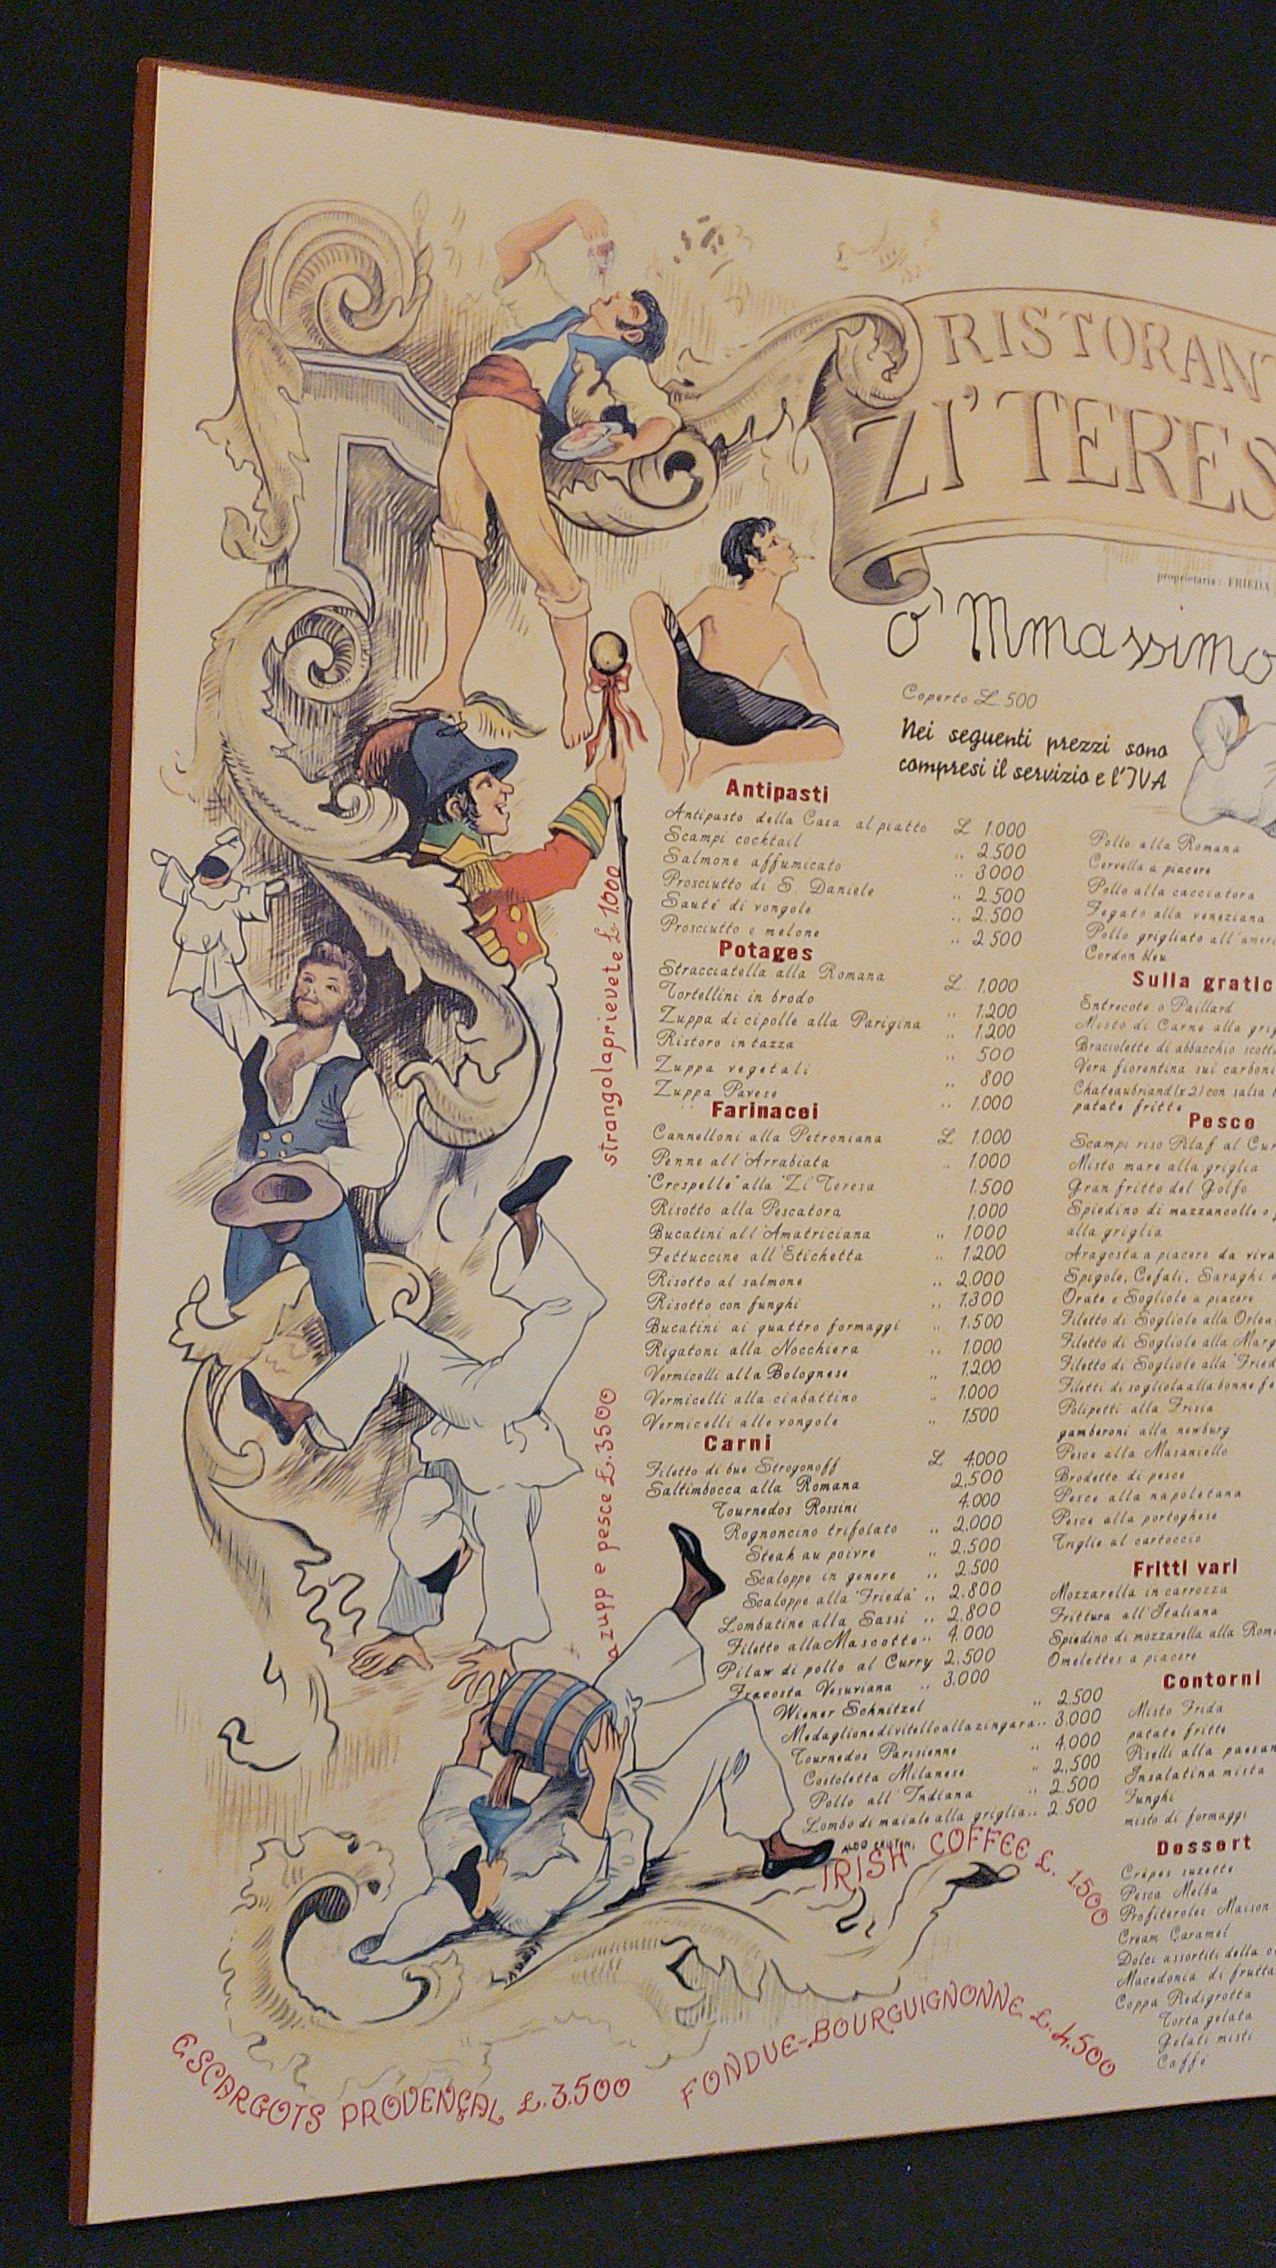 RISTORANT
ZI' TERES
proprietaria: FRIEDA
O' Mmassimo
Coperto £ 500
Nei seguenti prezzi sono
compresi il servizio e l'IVA
Antipasti
Antipasto della Casa al piatto £ 1.000
Scampi cocktail .. 2.500
Salmone affumicato .. 3.000
Prosciutto di S. Daniele .. 2.500
Sauté di vongole .. 2.500
Prosciutto e melone .. 2.500
Potages
Stracciatella alla Romana £ 1.000
Tortellini in brodo .. 1.200
Zuppa di cipolle alla Parigina .. 1.200
Ristoro in tazza .. 500
Zuppa vegetali .. 800
Zuppa Pavese .. 1.000
Farinacei
Cannelloni alla Petroniana £ 1.000
Penne all'Arrabiata .. 1.000
"Crespelle" alla "Zi' Teresa 1.500
Risotto alla Pescatora 1.000
Bucatini all'Amatriciana .. 1.000
Fettuccine all'Etichetta .. 1.200
Risotto al salmone .. 2.000
Risotto con funghi .. 1.300
Bucatini ai quattro formaggi .. 1.500
Rigatoni alla Nocchiera .. 1.000
Vermicelli alla Bolognese .. 1.200
Vermicelli alla ciabattino .. 1.000
Vermicelli alle vongole .. 1.500
Carni
Filetto di bue Strogonoff £ 4.000
Saltimbocca alla Romana 2,500
Tournedos Rossini 4.000
Rognoncino trifolato .. 2.000
Steak au poivre .. 2.500
Scaloppe in genere .. 2.500
Scaloppe alla "Frieda" .. 2.800
Lombatine alla Sassi .. 2.800
Filetto alla Mascotte .. 4.000
Pilaw di pollo al Curry 2.500
Fracosta Vesuviana .. 3.000
Wiener Schnitzel .. 2.500
Medaglione di vitello alla zingara .. 3.000
Tournedos Parisienne .. 4.000
Costoletta Milanese .. 2,500
Pollo all'Indiana .. 2.500
Lombo di maiale alla griglia .. 2.500
Pollo alla Romana
Cervella a piacere
Pollo alla cacciatora
Fegato alla veneziana
Pollo grigliato all'amer
Cordon bleu
Sulla gratic
Entrecote o Paillard
Misto di Carne alla grig
Braciolette di abbacchio scott
Vera fiorentina sui carboni
Chateaubriand (x2) con salsa
patate fritte
Pesce
Scampi riso Pilaf al Cur
Misto mare alla griglia
Gran fritto del Golfo
Spiedino di mazzancolle o
alla griglia
Aragosta a piacere da viva
Spigole, Cefali, Saraghi
Orate e Sogliole a piacere
Filetto di Sogliole alla Orlea
Filetto di Sogliole alla Marg
Filetto di Sogliole alla "Fried
Filetti di sogliola alla bonne fe
Polipetti alla Frisia
gamberoni alla newburg
Pesce alla Masaniello
Brodetto di pesce
Pesce alla napoletana
Pesce alla portoghese
Triglie al cartoccio
Fritti vari
Mozzarella in carrozza
Frittura all'Italiana
Spiedino di mozzarella alla Rom
Omelettes a piacere
Contorni
Misto Frida
patate fritte
Piselli alla paesan
Insalatina mista
Funghi
misto di formaggi
Dessert
Crêpes suzette
Pesca Melba
Profiteroles Maison
Cream Caramel
Dolci assortiti della c
Macedonia di frutta
Coppa Piedigrotta
Torta gelata
Gelati misti
Caffé
strangolaprievete £. 1.000
azupp e pesce £. 3500
IRISH COFFEE £. 1.500
ESCARGOTS PROVENÇAL £. 3.500
FONDUE-BOURGUIGNONNE £. 4.500